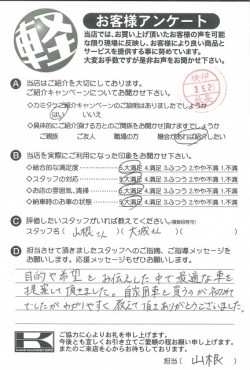 軽
お客様アンケート
当店では、お買い上げ頂いたお客様の声を可能
な限り現場に反映し、お客様により良い商品と
サービスを提供する事に努めています。
大変お手数ですが是非お声をお聞かせ下さい。
A 当店はご紹介を大切にしております。
ご紹介キャンペーンについてお聞かせ下さい。
◇カミタケご紹介キャンペーンのご説明はありましたでしょうか
はい いいえ
◇具体的にご紹介頂ける方との関係をお聞かせ頂けますでしょうか
ご親族 ご友人 職場の方 機会があれば紹介したい
B 当店を実際にご利用になった印象をお聞かせ下さい。
◇総合的な満足度 5.大満足 4.満足 3.ふつう 2.やや不満 1.不満
◇スタッフの対応 5.大満足 4.満足 3.ふつう 2.やや不満 1.不満
◇お店の雰囲気、清掃 5.大満足 4.満足 3.ふつう 2.やや不満 1.不満
◇納車時のお車の状態 5.大満足 4.満足 3.ふつう 2.やや不満 1.不満
C 評価したいスタッフがいれば教えてください。(複数回答可)
スタッフ名( 山根さん )( 大城さん )
D 担当させて頂きましたスタッフへのご指摘、ご指導メッセージを
お願いします。応援メッセージもぜひお願いします。
目的や希望をお伝えした中で最適な車を
提案して頂きました。自家用車を買うのが初めて
でしたがわかりやすく教えて頂きありがとうございました。
K
ご協力に心よりお礼を申し上げます。
今後とも宜しくお引き立てご愛顧の程お願い申し上げます。
またのご来店を心からお待ちしております。
担当( 山根 )